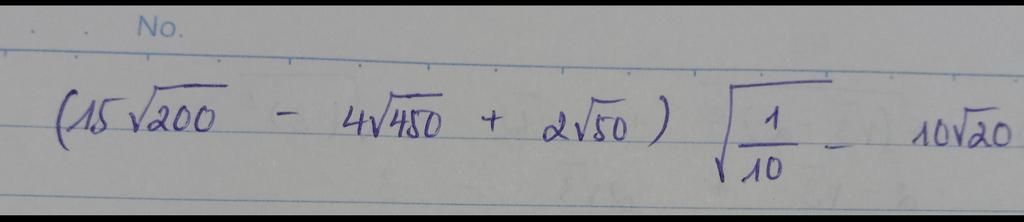 No.
(15√200 - 4√450 + 2√50) √(1/10) - 10√20